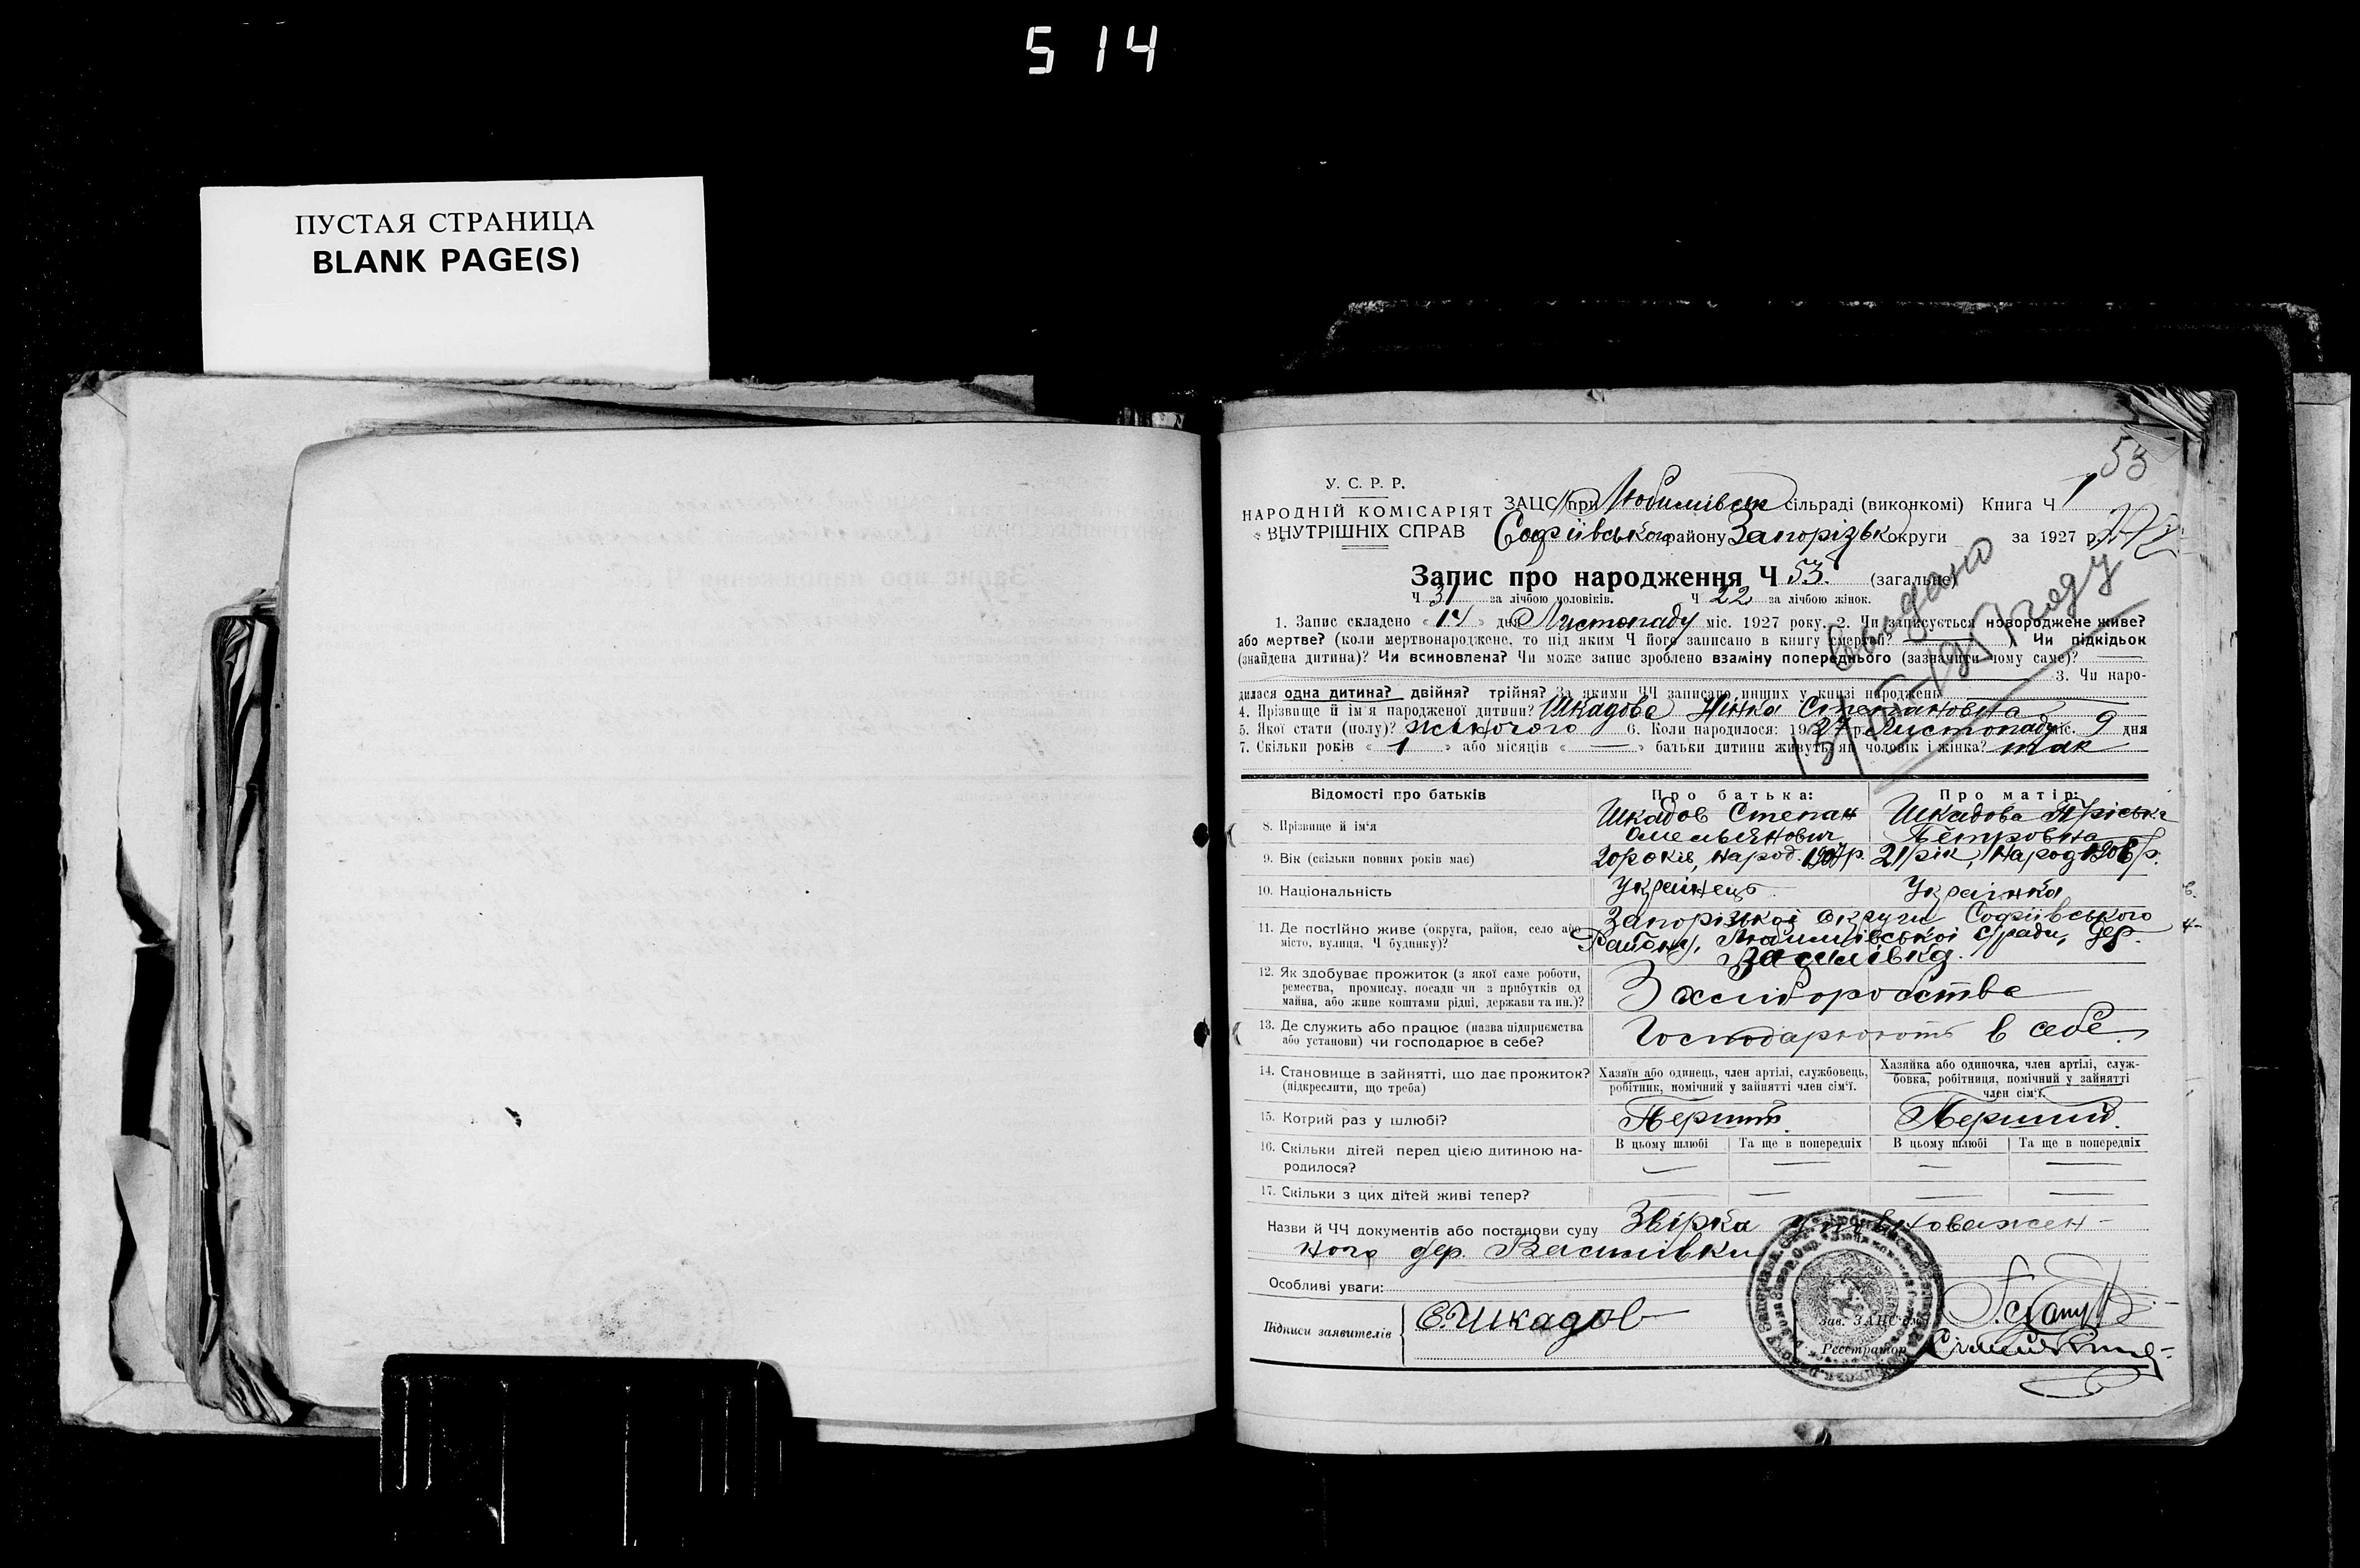 514
ПУСТАЯ СТРАНИЦА
BLANK PAGE(S)
53
У. С. Р. Р.
НАРОДНІЙ КОМІСАРІЯТ
ВНУТРІШНІХ СПРАВ
ЗАЦС при Любимівськ сільраді (виконкомі) Книга Ч 1
Софіївського району Запорізьк округи за 1927 р.
Запис про народження Ч 53. (загальне)
Ч 31 за лічбою чоловіків. Ч 22 за лічбою жінок.
1. Запис складено « 14 » дня Листопаду міс. 1927 року. 2. Чи записується новороджене живе?
або мертве? (коли мертвонароджене, то під яким Ч його записано в книгу смертей? ) Чи підкідьок
(знайдена дитина)? Чи всиновлена? Чи може запис зроблено взаміну попереднього (зазначити чому саме)?
3. Чи наро-
дилася одна дитина? двійня? трійня? За якими ЧЧ записано инших у книзі народжень
4. Прізвище й ім'я народженої дитини? Шкадова Нінка Степановна
5. Якої стати (полу)? жіночого 6. Коли народилося: 1927 р. Листопаду міс. 9 дня
7. Скільки років « 1 » або місяців « — » батьки дитини живуть як чоловік і жінка? так
Видано
году
Відомості про батьків
Про батька:
Про матір:
8. Прізвище й ім'я
Шкадов Степан
Омельянович
Шкадова
Петровна
9. Вік (скільки повних років має)
20 років, народ. 1907 р.
21 рік, народ 1906 р.
10. Національність
Українець
Українка
11. Де постійно живе (округа, район, село або
місто, вулиця, Ч будинку)?
Запорізької округи Софіївського
Району, Любимівської с/ради, дер.
Василівка.
12. Як здобуває прожиток (з якої саме роботи,
ремества, промислу, посади чи з прибутків од
майна, або живе коштами рідні, держави та ин.)?
Хліборобства
13. Де служить або працює (назва підприємства
або установи) чи господарює в себе?
Господарюють в себе.
14. Становище в зайнятті, що дає прожиток?
(підкреслити, що треба)
Хазяїн або одинець, член артілі, службовець,
робітник, помічний у зайнятті член сім'ї.
Хазяйка або одиночка, член артілі, служ-
бовка, робітниця, помічний у зайнятті
член сім'ї.
15. Котрий раз у шлюбі?
Перший.
Перший.
16. Скільки дітей перед цією дитиною на-
родилося?
В цьому шлюбі
Та ще в попередніх
В цьому шлюбі
Та ще в попередніх
17. Скільки з цих дітей живі тепер?
Назви й ЧЧ документів або постанови суду Звірка уповноважен-
ного дер. Василівки
Особливі уваги:
Підписи заявителів
С. Шкадов
Зав. ЗАЦС'ом
Реєстратор